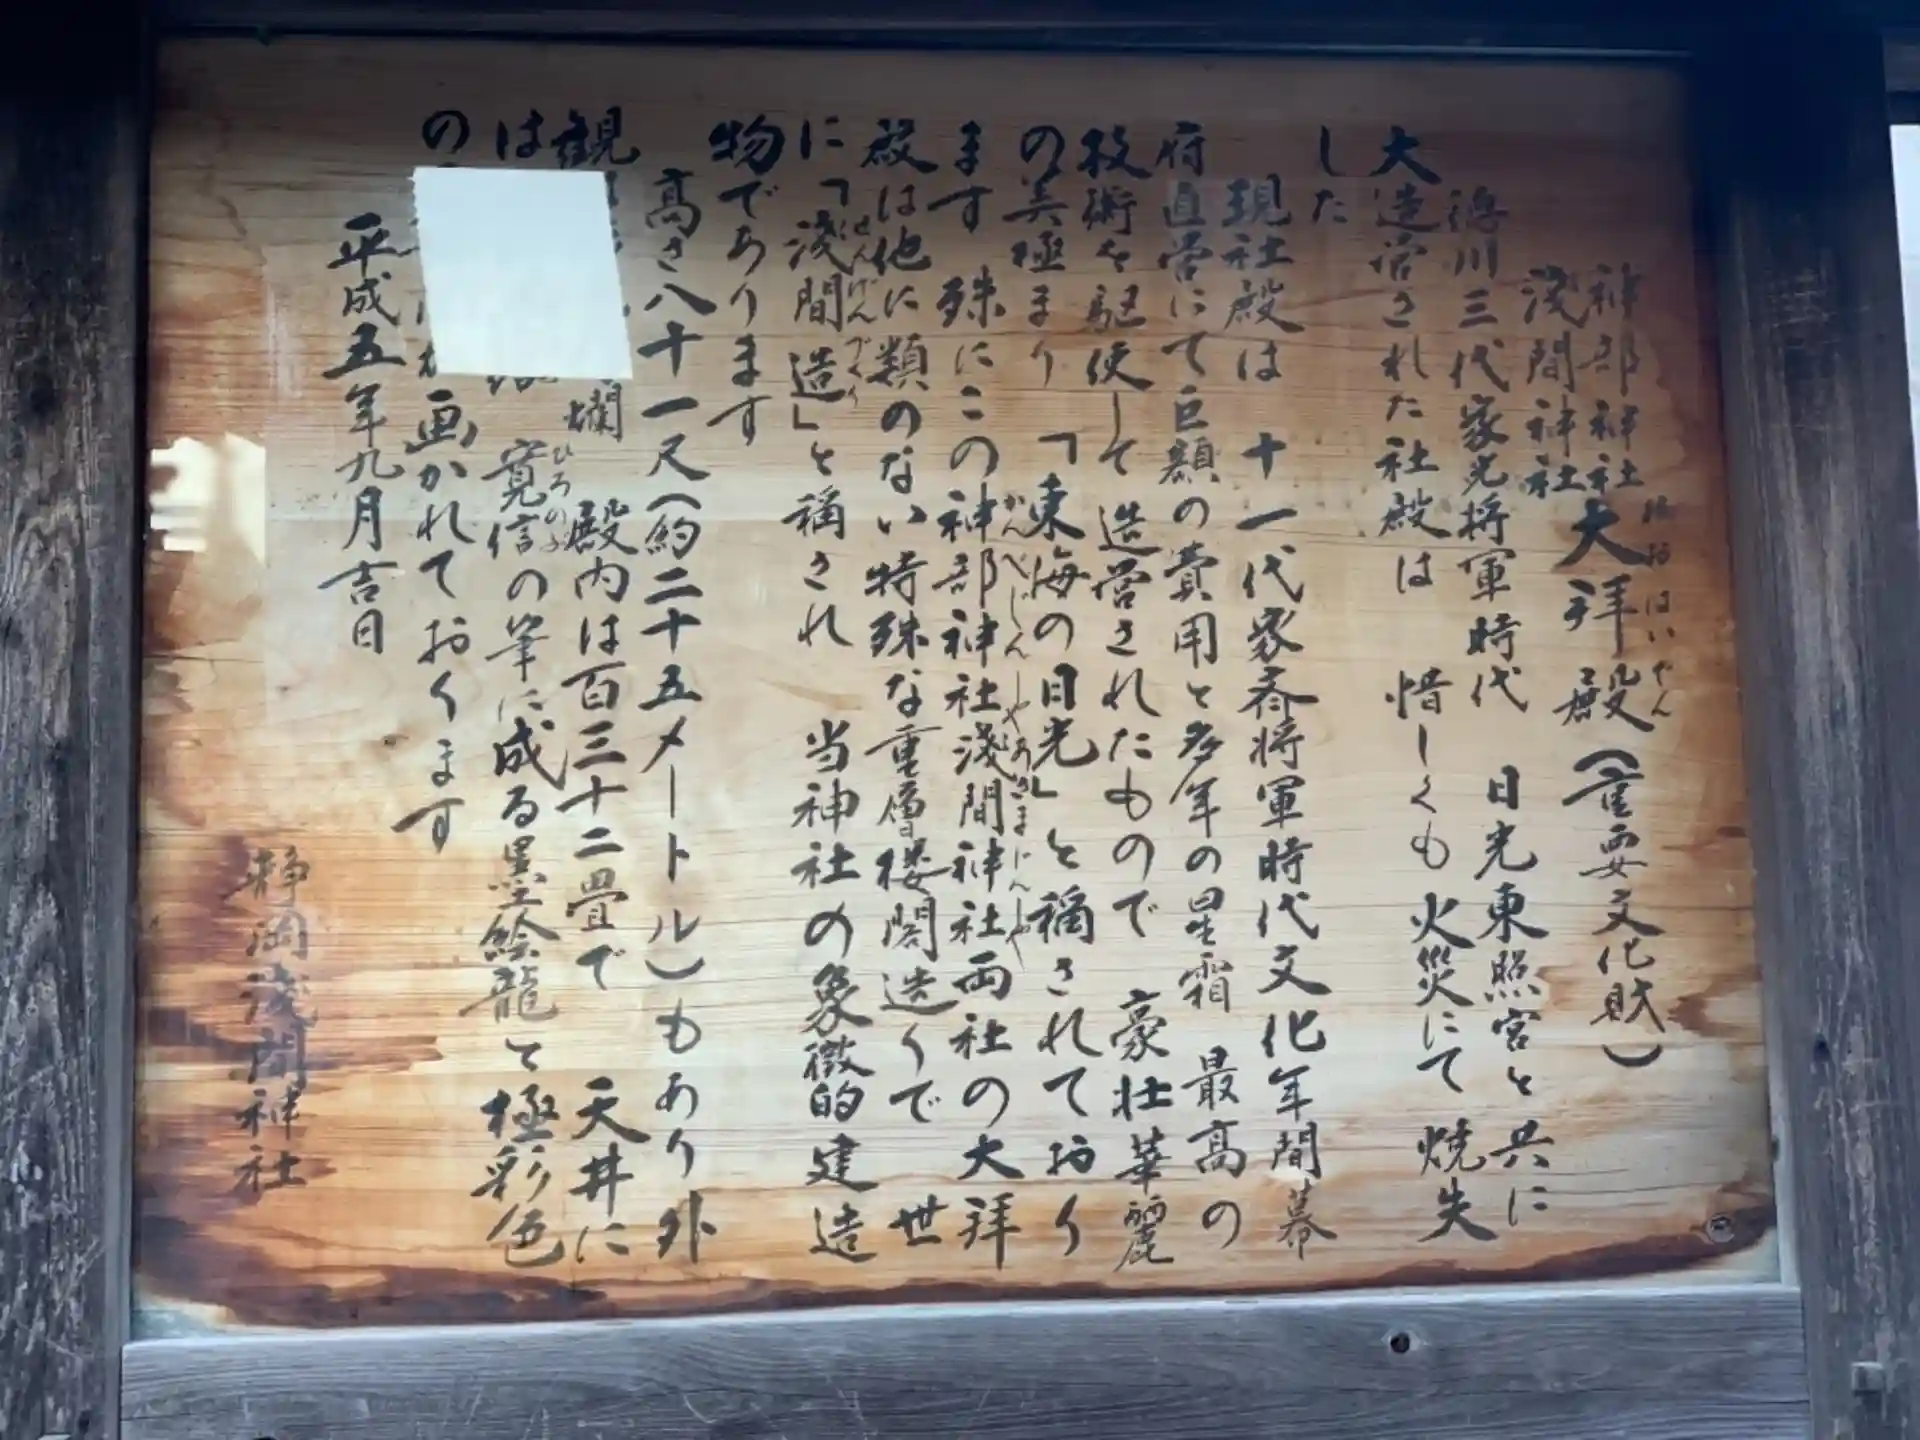 神部神社
浅間神社 大拝殿(重要文化財)
おおはいでん
徳川三代家光将軍時代 日光東照宮と共に
大造営された社殿は 惜しくも火災にて焼失
した
現社殿は 十一代家斉将軍時代文化年間幕
府直営にて巨額の費用と多年の星霜 最高の
技術を駆使して造営されたもので 豪壮華麗
の美極まり「東海の日光」と称されており
ます 殊にこの神部神社浅間神社両社の大拝
かんべじんじゃあさまじんじゃ
殿は他に類のない特殊な重層楼閣造りで 世
に「浅間造」と称され 当神社の象徴的建造
せんげんづくり
物であります
高さ八十一尺(約二十五メートル)もあり外
観 爛 殿内は百三十二畳で 天井に
は 寛信の筆に成る墨絵龍と極彩色
ひろのぶ
の 画かれております
平成五年九月吉日
静岡浅間神社